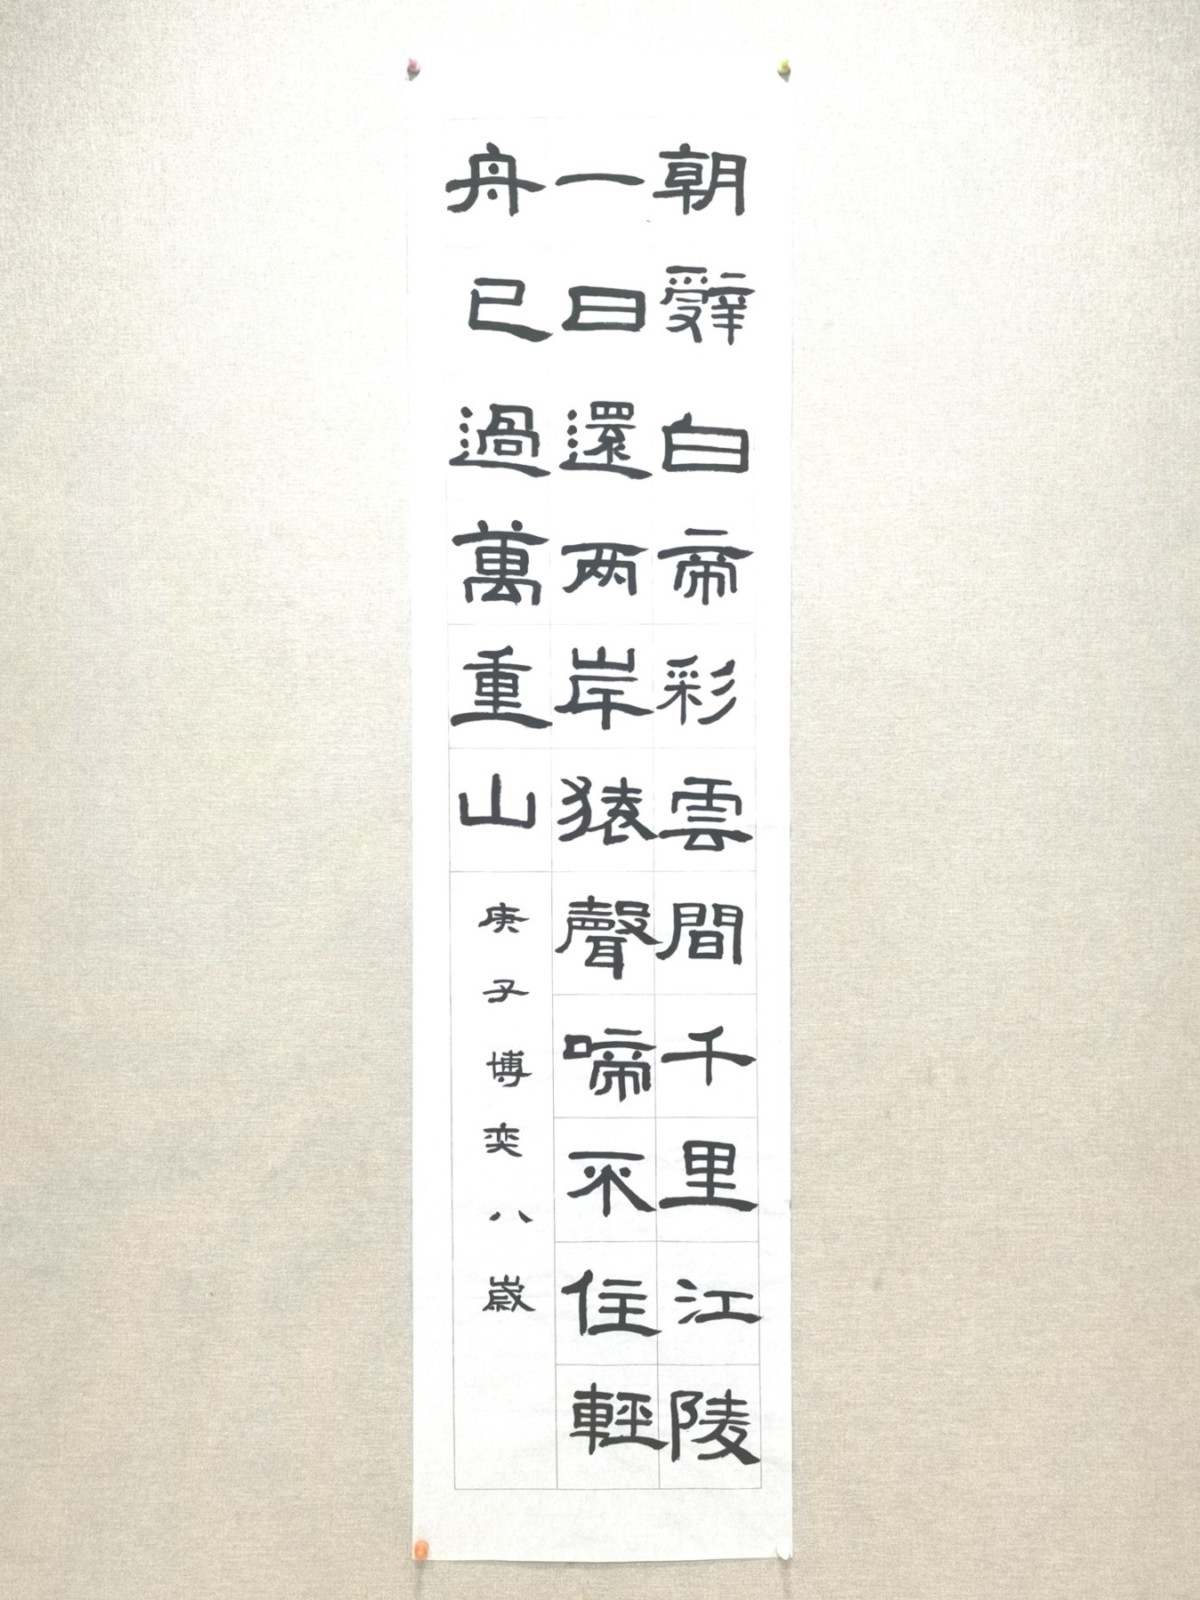 朝辤白帝彩雲間千里江陵
一日還两岸猿聲啼不住輕
舟已過萬重山
庚子博奕八歲